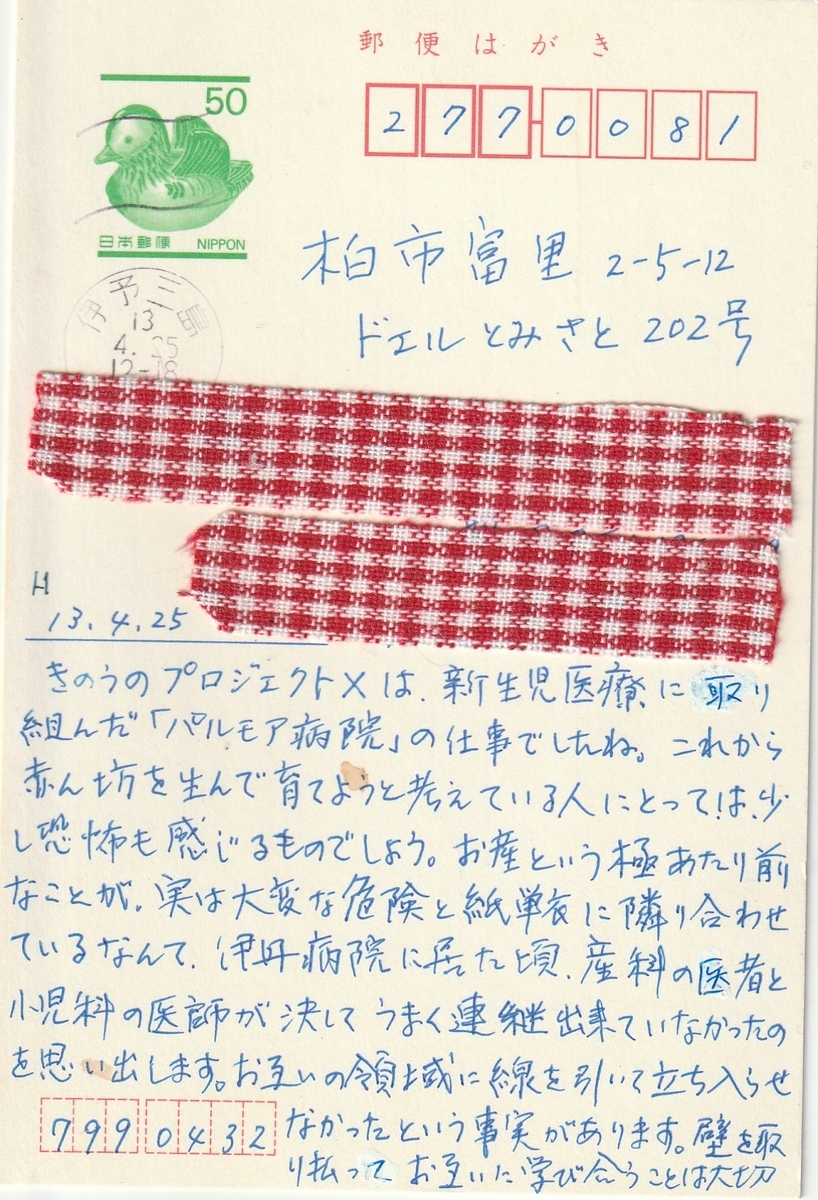 郵便はがき
50
277-0081
日本郵便 NIPPON
柏市富里 2-5-12
ドエルとみさと 202号
伊予三島
13
4. 25
12-18
H
13.4.25
きのうのプロジェクトXは、新生児医療に取り
組んだ「パルモア病院」の仕事でしたね。これから
赤ん坊を生んで育てようと考えている人にとっては、少
し恐怖も感じるものでしょう。お産という極あたり前
なことが、実は大変な危険と紙単衣に隣り合わせ
ているなんて、伊丹病院に居た頃、産科の医者と
小児科の医師が決してうまく連継出来ていなかったの
を思い出します。お互いの領域に線を引いて立ち入らせ
なかったという事実があります。壁を取
り払って お互いに学び合うことは大切
7990432